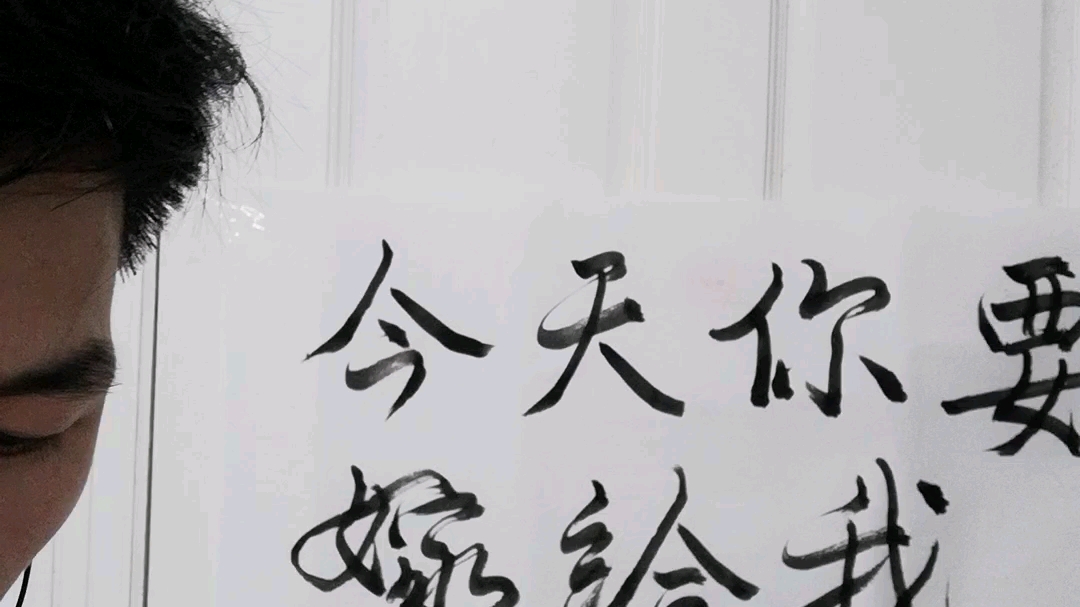 今天你要
嫁給我